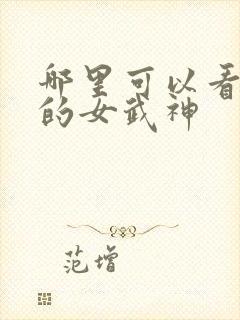 哪里可以看
的女武神
范增